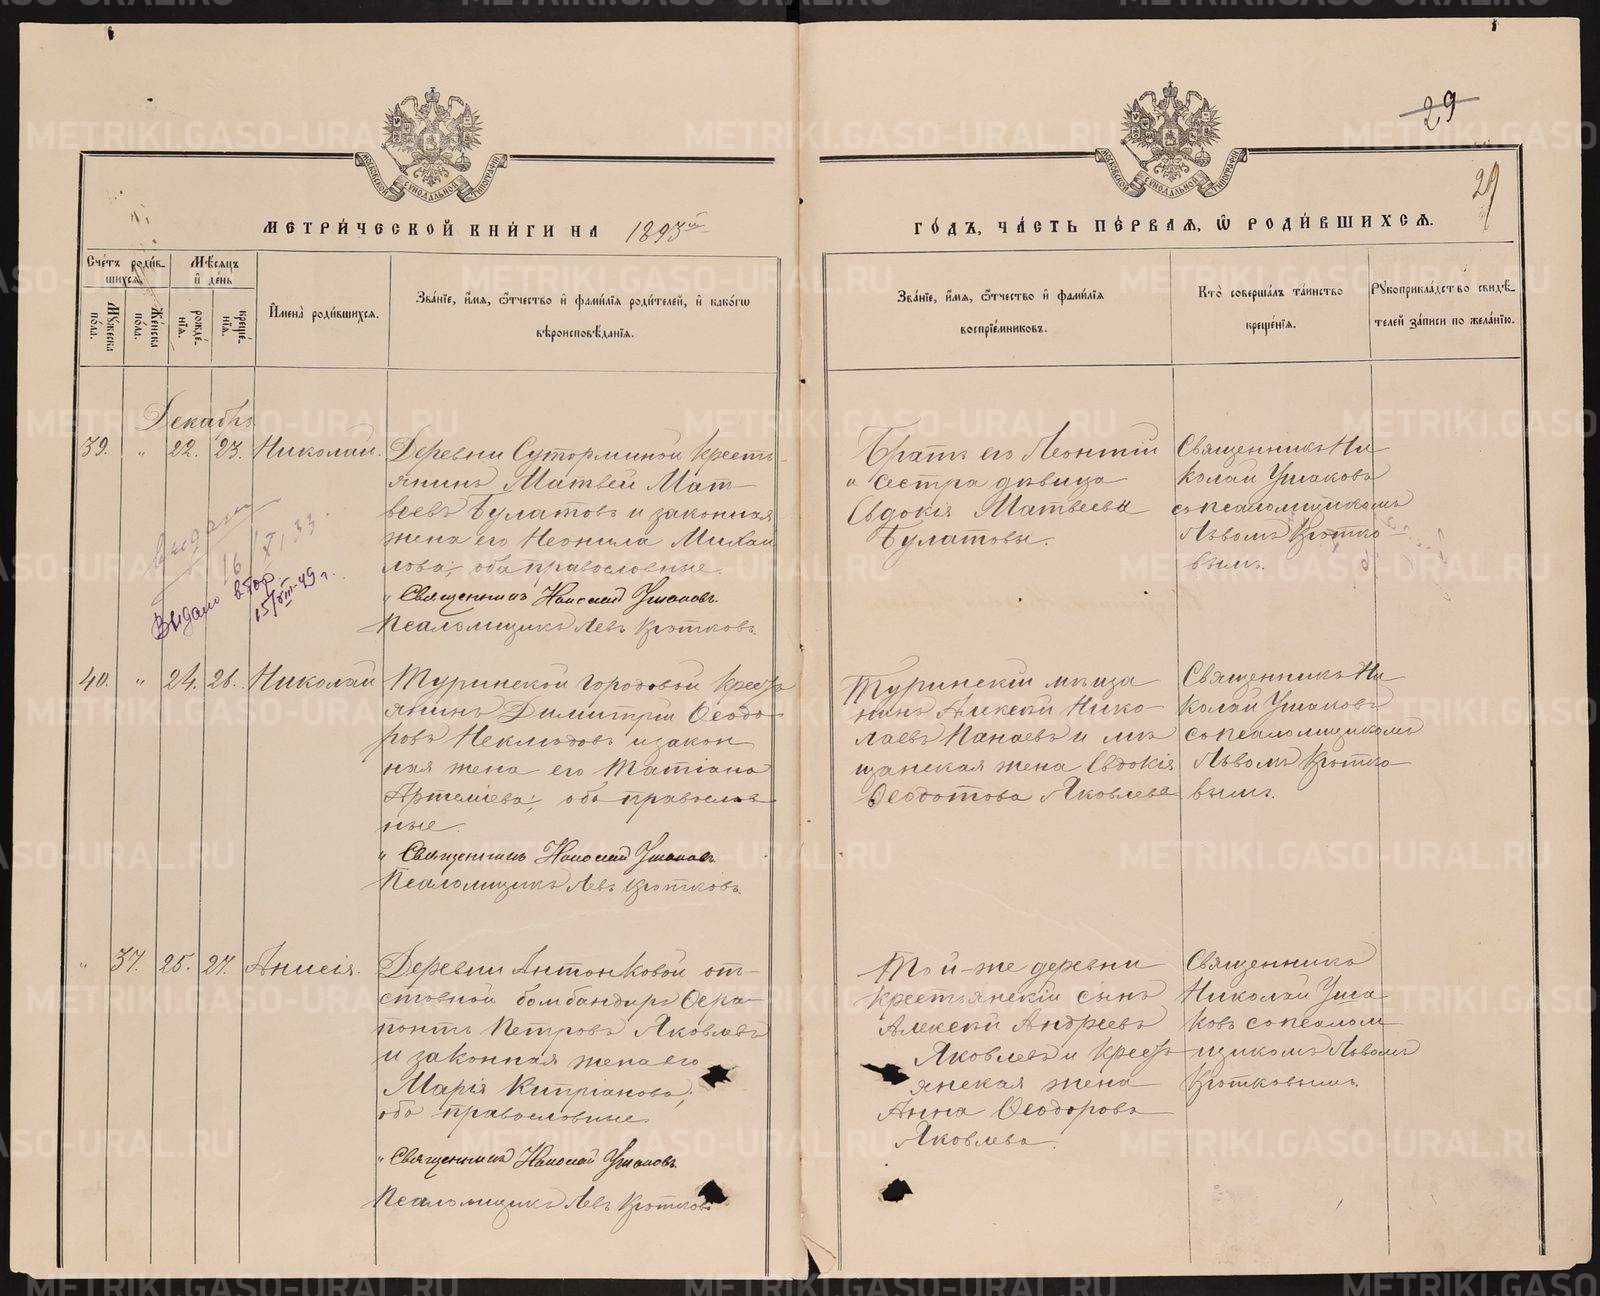 29
29
МОСКОВСКОЙ СѴНОДАЛЬНОЙ ТИПОГРАФІИ
МОСКОВСКОЙ СѴНОДАЛЬНОЙ ТИПОГРАФІИ
МЕТРИ́ЧЕСКОЙ КНИ́ГИ НА 1893й
ГО́ДЪ, ЧА́СТЬ ПЕ́РВАЯ, Ѿ РОДИ́ВШИХСЯ.
Сче́тъ роди́вшихся.
Му́жеска по́ла.
Же́нска по́ла.
Мѣ́сяцъ и҆ де́нь
рожде́нїя.
креще́нїя.
И҆мена̀ роди́вшихся.
Зва́нїе, и҆́мя, ѻ҆́тчество и҆ фами́лїя роди́телей, и҆ како́гѡ
вѣроисповѣ́данїя.
Зва́нїе, и҆́мя, ѻ҆́тчество и҆ фами́лїя
воспрїе́мниковъ.
Кто̀ соверша́лъ та́инство
креще́нїя.
Рꙋкоприкла́дство свидѣ́-
телей за́писи по жела́нїю.
Декабрь
39. " 22. 23. Николай.
Деревни Суторминой кресть-
янинъ Матвей Мат-
веевъ Булатовъ и законная
жена его Неонила Михаи
лова; оба православные.
" Священникъ Николай Ушаковъ.
Псаломщикъ Левъ Кротковъ.
Братъ его Леонтій
и сестра дѣвица
Евдокія Матвеевы
Булатовы.
Священникъ Ни
колай Ушаковъ
съ псаломщикомъ
Львомъ Кротко-
вымъ.
выдана
16/XI 33.
Выдано втор.
15/VIII-49 г.
40. " 24. 26. Николай
Туринской городовой кресть
янинъ Димитрій Ѳеодо-
ровъ Неклюдовъ и закон
ная жена его Татіана
Артеміева; оба православ
ные.
" Священникъ Николай Ушаковъ
Псаломщикъ Левъ Кротковъ.
Туринскій мѣща
нинъ Алексей Нико-
лаевъ Панаевъ и мѣ
щанская жена Евдокія
Ѳеодотова Яковлева
Священникъ Ни
колай Ушаковъ
съ псаломщикомъ
Львомъ Кротко-
вымъ.
" 37. 25. 27. Анисія.
Деревни Антонковой от-
ставной бомбандиръ Ѳера-
понтъ Петровъ Яковлевъ
и законная жена его
Марія Кипріанова;
оба православные.
" Священникъ Николай Ушаковъ.
Псаломщикъ Левъ Кротковъ.
Той-же деревни
крестьянскій сынъ
Алексей Андреевъ
Яковлевъ и кресть
янская жена
Анна Ѳеодорова
Яковлева.
Священникъ
Николай Уша
ковъ съ псалом
щикомъ Львомъ
Кротковымъ.
METRIKI.GASO-URAL.RU